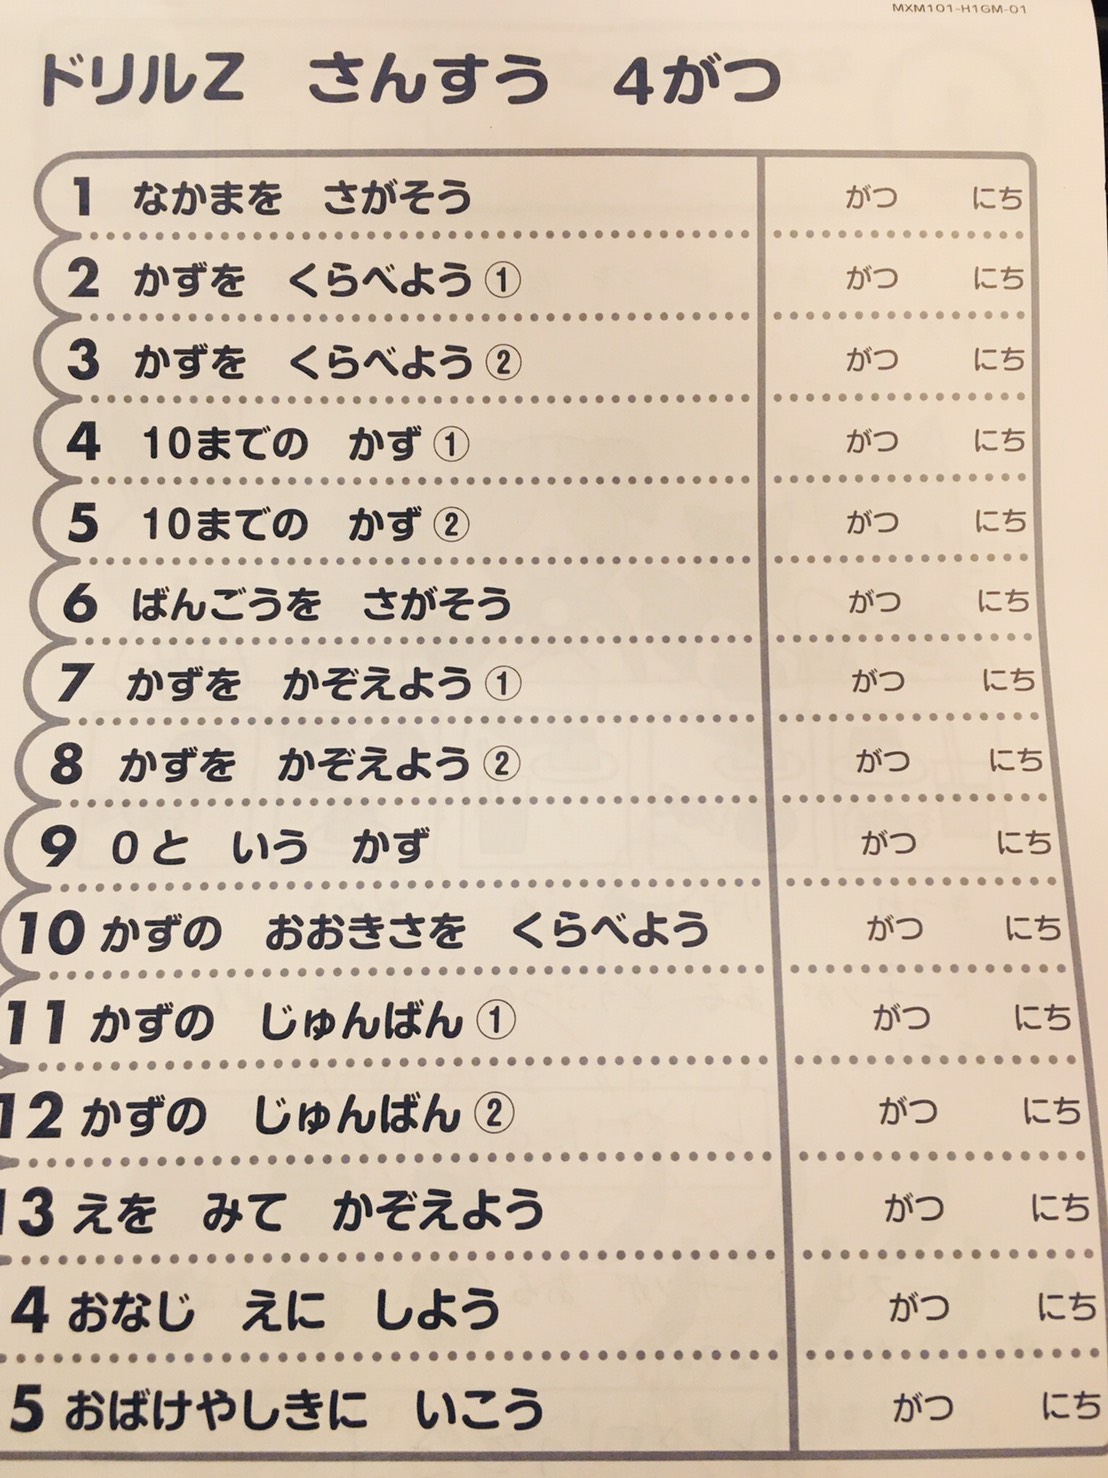 MXM101-H1GM-01
ドリルZ　さんすう　4がつ
1 なかまを　さがそう　がつ　にち
2 かずを　くらべよう①　がつ　にち
3 かずを　くらべよう②　がつ　にち
4 10までの　かず①　がつ　にち
5 10までの　かず②　がつ　にち
6 ばんごうを　さがそう　がつ　にち
7 かずを　かぞえよう①　がつ　にち
8 かずを　かぞえよう②　がつ　にち
9 0と　いう　かず　がつ　にち
10 かずの　おおきさを　くらべよう　がつ　にち
11 かずの　じゅんばん①　がつ　にち
12 かずの　じゅんばん②　がつ　にち
13 えを　みて　かぞえよう　がつ　にち
4 おなじ　えに　しよう　がつ　にち
5 おばけやしきに　いこう　がつ　にち